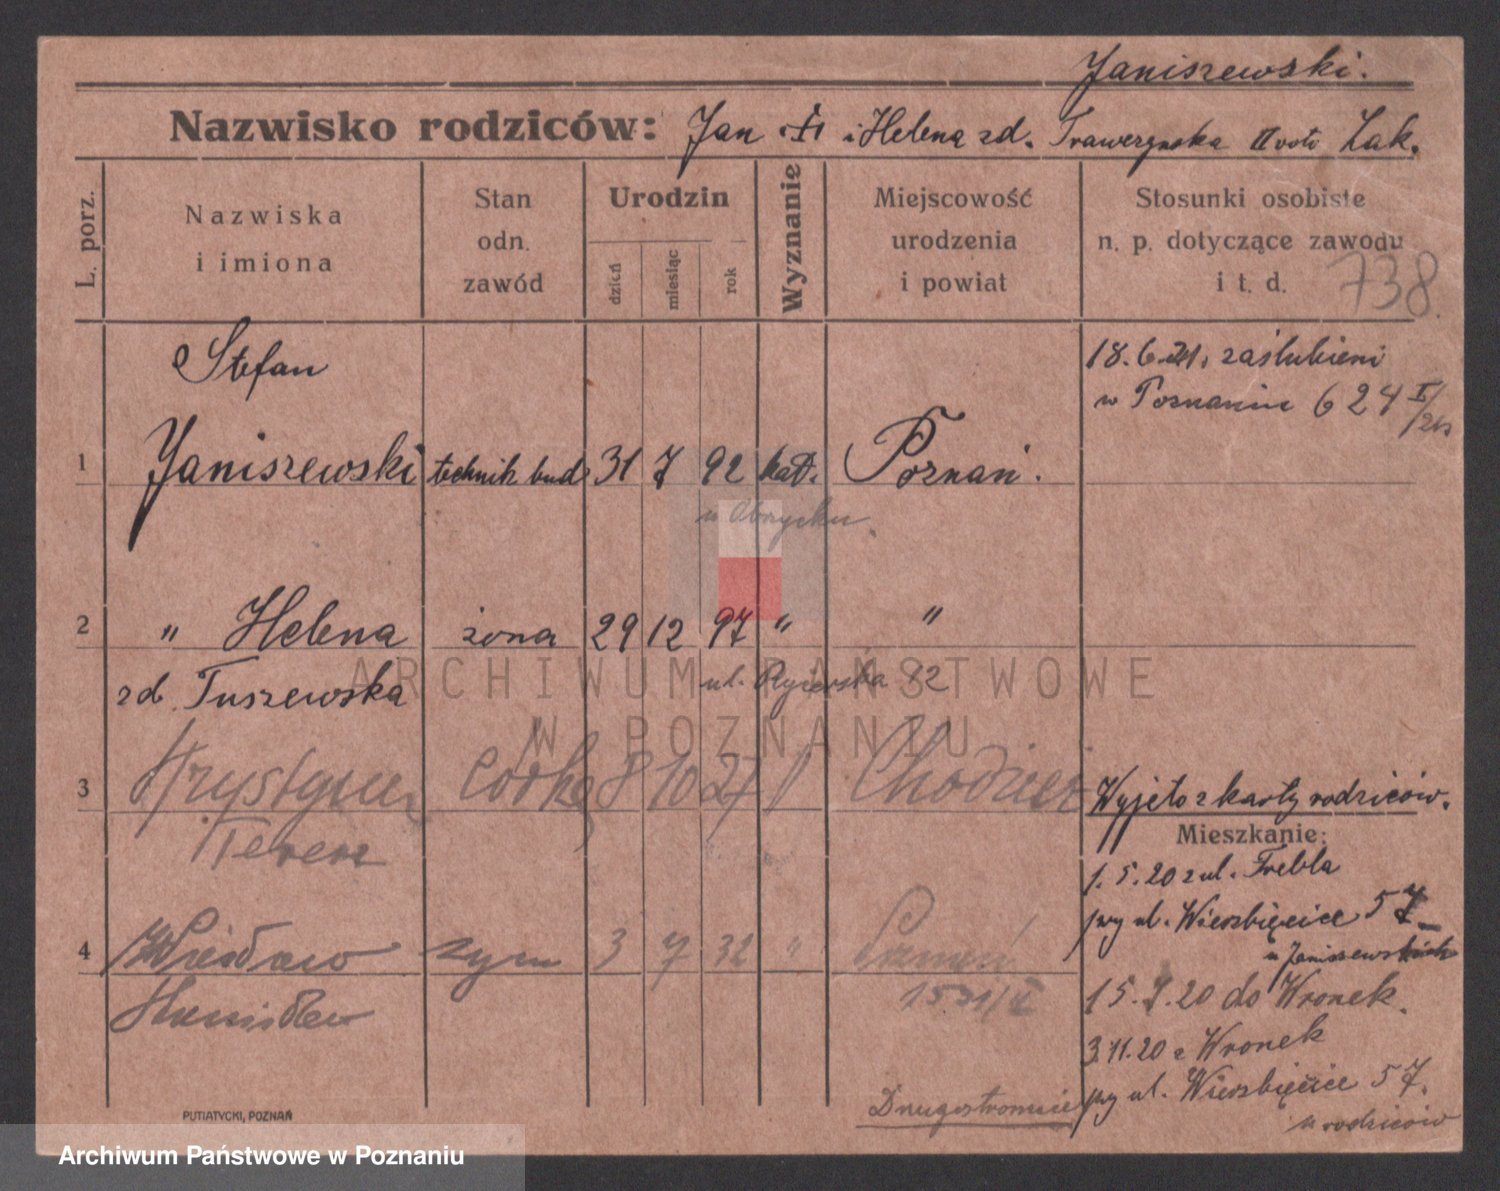 Janiszewski.
Nazwisko rodziców: Jan i Helena zd. Trawczyńska II voto Żak.
L. porz.
Nazwiska
i imiona
Stan
odn.
zawód
Urodzin
dzień
miesiąc
rok
Wyznanie
Miejscowość
urodzenia
i powiat
Stosunki osobiste
n. p. dotyczące zawodu
i t. d.
738.
18.6.21, zaślubieni
w Poznaniu 624
1 Stefan
Janiszewski technik bud 31 7 92 kat. Poznań.
2 " Helena żona 29 12 97 " "
zd. Tuszewska
ul. 12
3 Krystyna córka 8 10 27 Chodzież
Teresa
Wyjęto z karty rodziców.
Mieszkanie:
1.5.20 z ul. Trebla
przy ul. Wierzbięcice 57
u Janiszewskich
15.7.20 do Wronek.
3.11.20 z Wronek
przy ul. Wierzbięcice 57.
u rodziców
4 Wiesław syn 3 7 32 "
Drugostronnie
PUTIATYCKI, POZNAŃ
ARCHIWUM PAŃSTWOWE
W POZNANIU
Archiwum Państwowe w Poznaniu